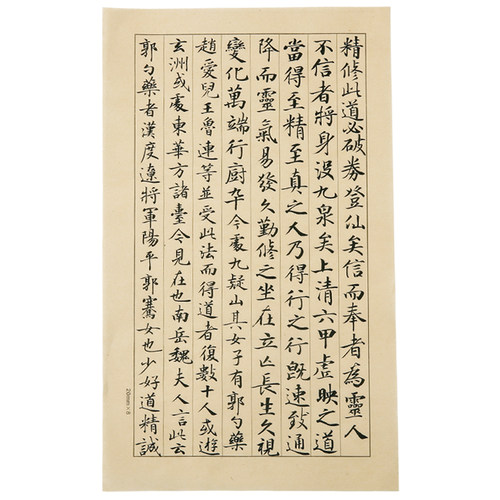 精修此道必破券登仙矣信而奉者為靈人
不信者將身沒九泉矣上清六甲虛映之道
當得至精至真之人乃得行之行既速致通
降而靈氣易發久勤修之坐在立亡長生久視
變化萬端行厨卒今處九疑山其女子有郭勺藥
趙愛兒王魯連等並受此法而得道者復數十人或遊
玄洲或處東華方諸臺今見在也南岳魏夫人言此云
郭勺藥者漢度遼將軍陽平郭騫女也少好道精誠